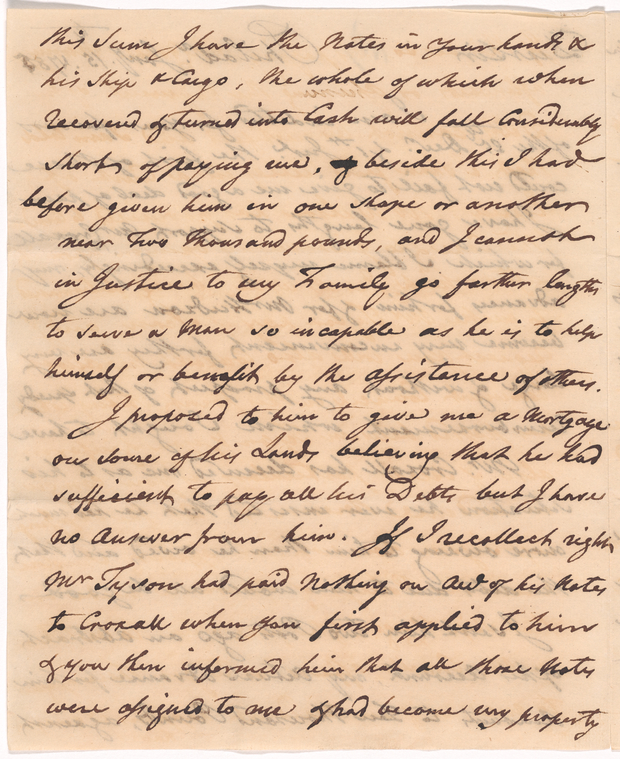 this Sum I have the Notes in your hands &
his Ship & Cargo, the whole of which when
recovered & turned into Cash will fall Considerably
Short of paying me, & beside this I had
before given him in one shape or another
near Two thousand pounds, and I cannot
in Justice to my Family go farther lengths
to serve a Man so incapable as he is to help
himself or benefit by the assistance of others.
I proposed to him to give me a Mortgage
on some of his Lands believing that he had
sufficient to pay all his Debts but I have
no Answer from him. If I recollect right
Mr Tyson had paid nothing on acct of his Notes
to Croxall when you first applied to him
& you then informed him that all those Notes
were assigned to me & had become my property